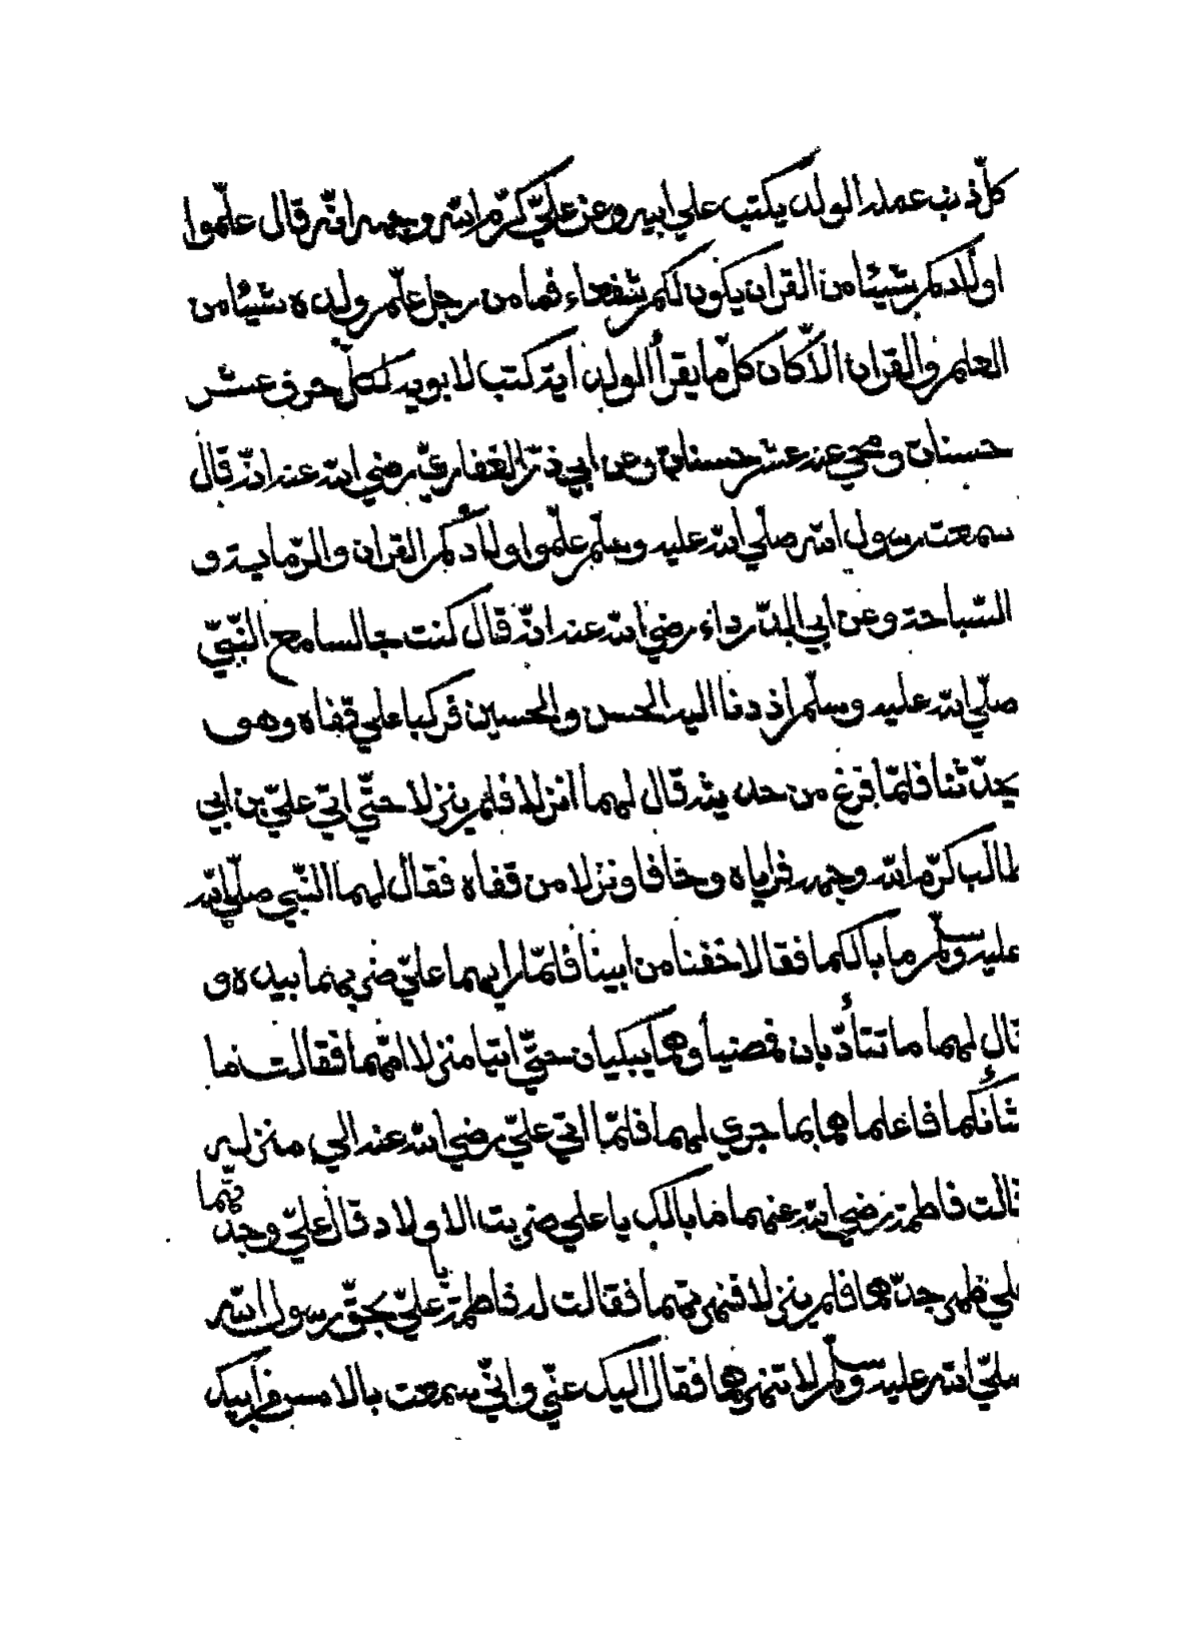 كلّ ذنب عمله الولد يكتب علي ابيه وعن عليّ كرّم الله وجهه انّه قال علّموا
اولادكم شيئا من القران يكون لكم شفعاء فما من رجل علّم ولده شيئا من
العلم والقران الاّ كان كلّ ما يقرأ الولد اية كتب لابويه لكلّ حرف عشر
حسنات ومحي عنه عشر حسنات وعن ابي ذرّ الغفاريّ رضي الله عنه انّه قال
سمعت رسول الله صلّي الله عليه وسلّم علّموا اولادكم القران والرّماية و
السّباحة وعن ابي الدّرداء رضي الله عنه انّه قال كنت جالسا مع النّبيّ
صلّي الله عليه وسلّم اذ دنا اليه الحسن والحسين فركبا علي قفاه وهو
يحدّثنا فلمّا فرغ من حديثه قال لهما انزلا فلم ينزلا حتّي اتي عليّ بن ابي
طالب كرّم الله وجهه فراياه وخافا ونزلا من قفاه فقال لهما النّبي صلّي الله
عليه وسلم ما بالكما فقالا خفنا من ابينا فلمّا رايهما عليّ ضربهما بيده و
قال لهما ما تتأدّبان فمضيا وهما يبكيان حتّي اتيا منزلا امّهما فقالت ما
شأنكما فاعلما هما بما جري لهما فلمّا اتي عليّ رضي الله عنه الي منزله
قالت فاطمة رضي الله عنهما ما بالك يا علي ضربت الاولاد قال عليّ وجدتّهما
علي ظهر جدّهما فلم ينزلا فنهرتهما فقالت له فاطمة يا عليّ بحقّ رسول الله
صلّي الله عليه وسلم لا تنهرهما فقال اليك عنّي وانّي سمعت بالامس من ابيك